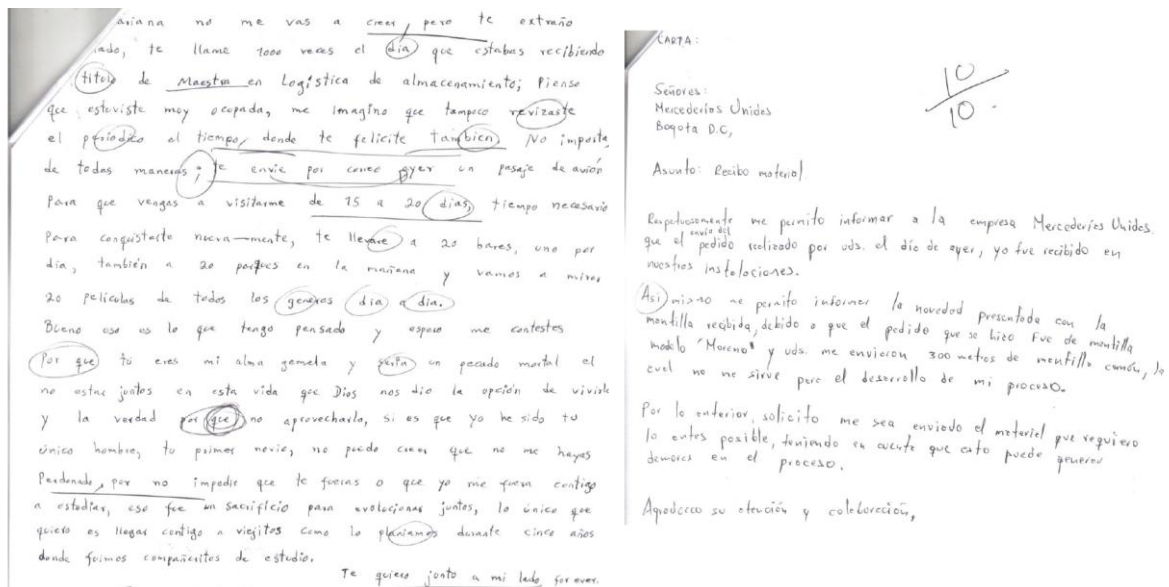 ariana no me vas a creer, pero te extraño
iado, te llame 1000 veces el día que estabas recibiendo
título de Maestra en Logística de almacenamiento; Pienso
que estoviste moy ocopada, me imagino que tampoco revizaste
el periódico el tiempo, donde te felicite tambien. No importa,
de todas maneras; te envie por correo ayer un pasaje de avión
Para que vengas a visitarme de 15 a 20 dias, tiempo necesario
Para conquistarte nueva-mente, te llevare a 20 bares, uno por
dia, también a 20 parques en la mañana y vamos a mirar
20 películas de todos los generos dia a dia.
Bueno eso es lo que tengo pensado y espero me contestes
Por que tú eres mi alma gemela y seria un pecado mortal el
no estar juntos en esta vida que Dios nos dio la opción de vivirla
y la verdad por que no aprovecharla, si es que yo he sido tu
único hombre, tu primer novio, no puedo creer que no me hayas
Perdonado, por no impedir que te fueras o que yo me fuera contigo
a estudiar, eso fue un sacrificio para evolucionar juntos, lo único que
quiero es llegar contigo a viejitos como lo planiamos durante cinco años
donde fuimos compañeritos de estudio.
Te quiero junto a mi lado for ever.
CARTA:
10
10
Señores:
Mercederías Unidas
Bogota D.C,
Asunto: Recibo material
Respetuosamente me permito informar a la empresa Mercederías Unidas.
envío del
que el pedido realizado por uds. el día de ayer, ya fue recibido en
nuestras instalaciones.
Así mismo me permito informar la novedad presentada con la
mantilla recibida, debido a que el pedido que se hizo fue de mantilla
modelo "Moreno" y uds. me enviaron 300 metros de mantilla común, la
cual no me sirve para el desarrollo de mi proceso.
Por lo anterior, solicito me sea enviado el material que requiero
lo antes posible, teniendo en cuenta que esto puede generar
demoras en el proceso.
Agradezco su atención y colaboración,